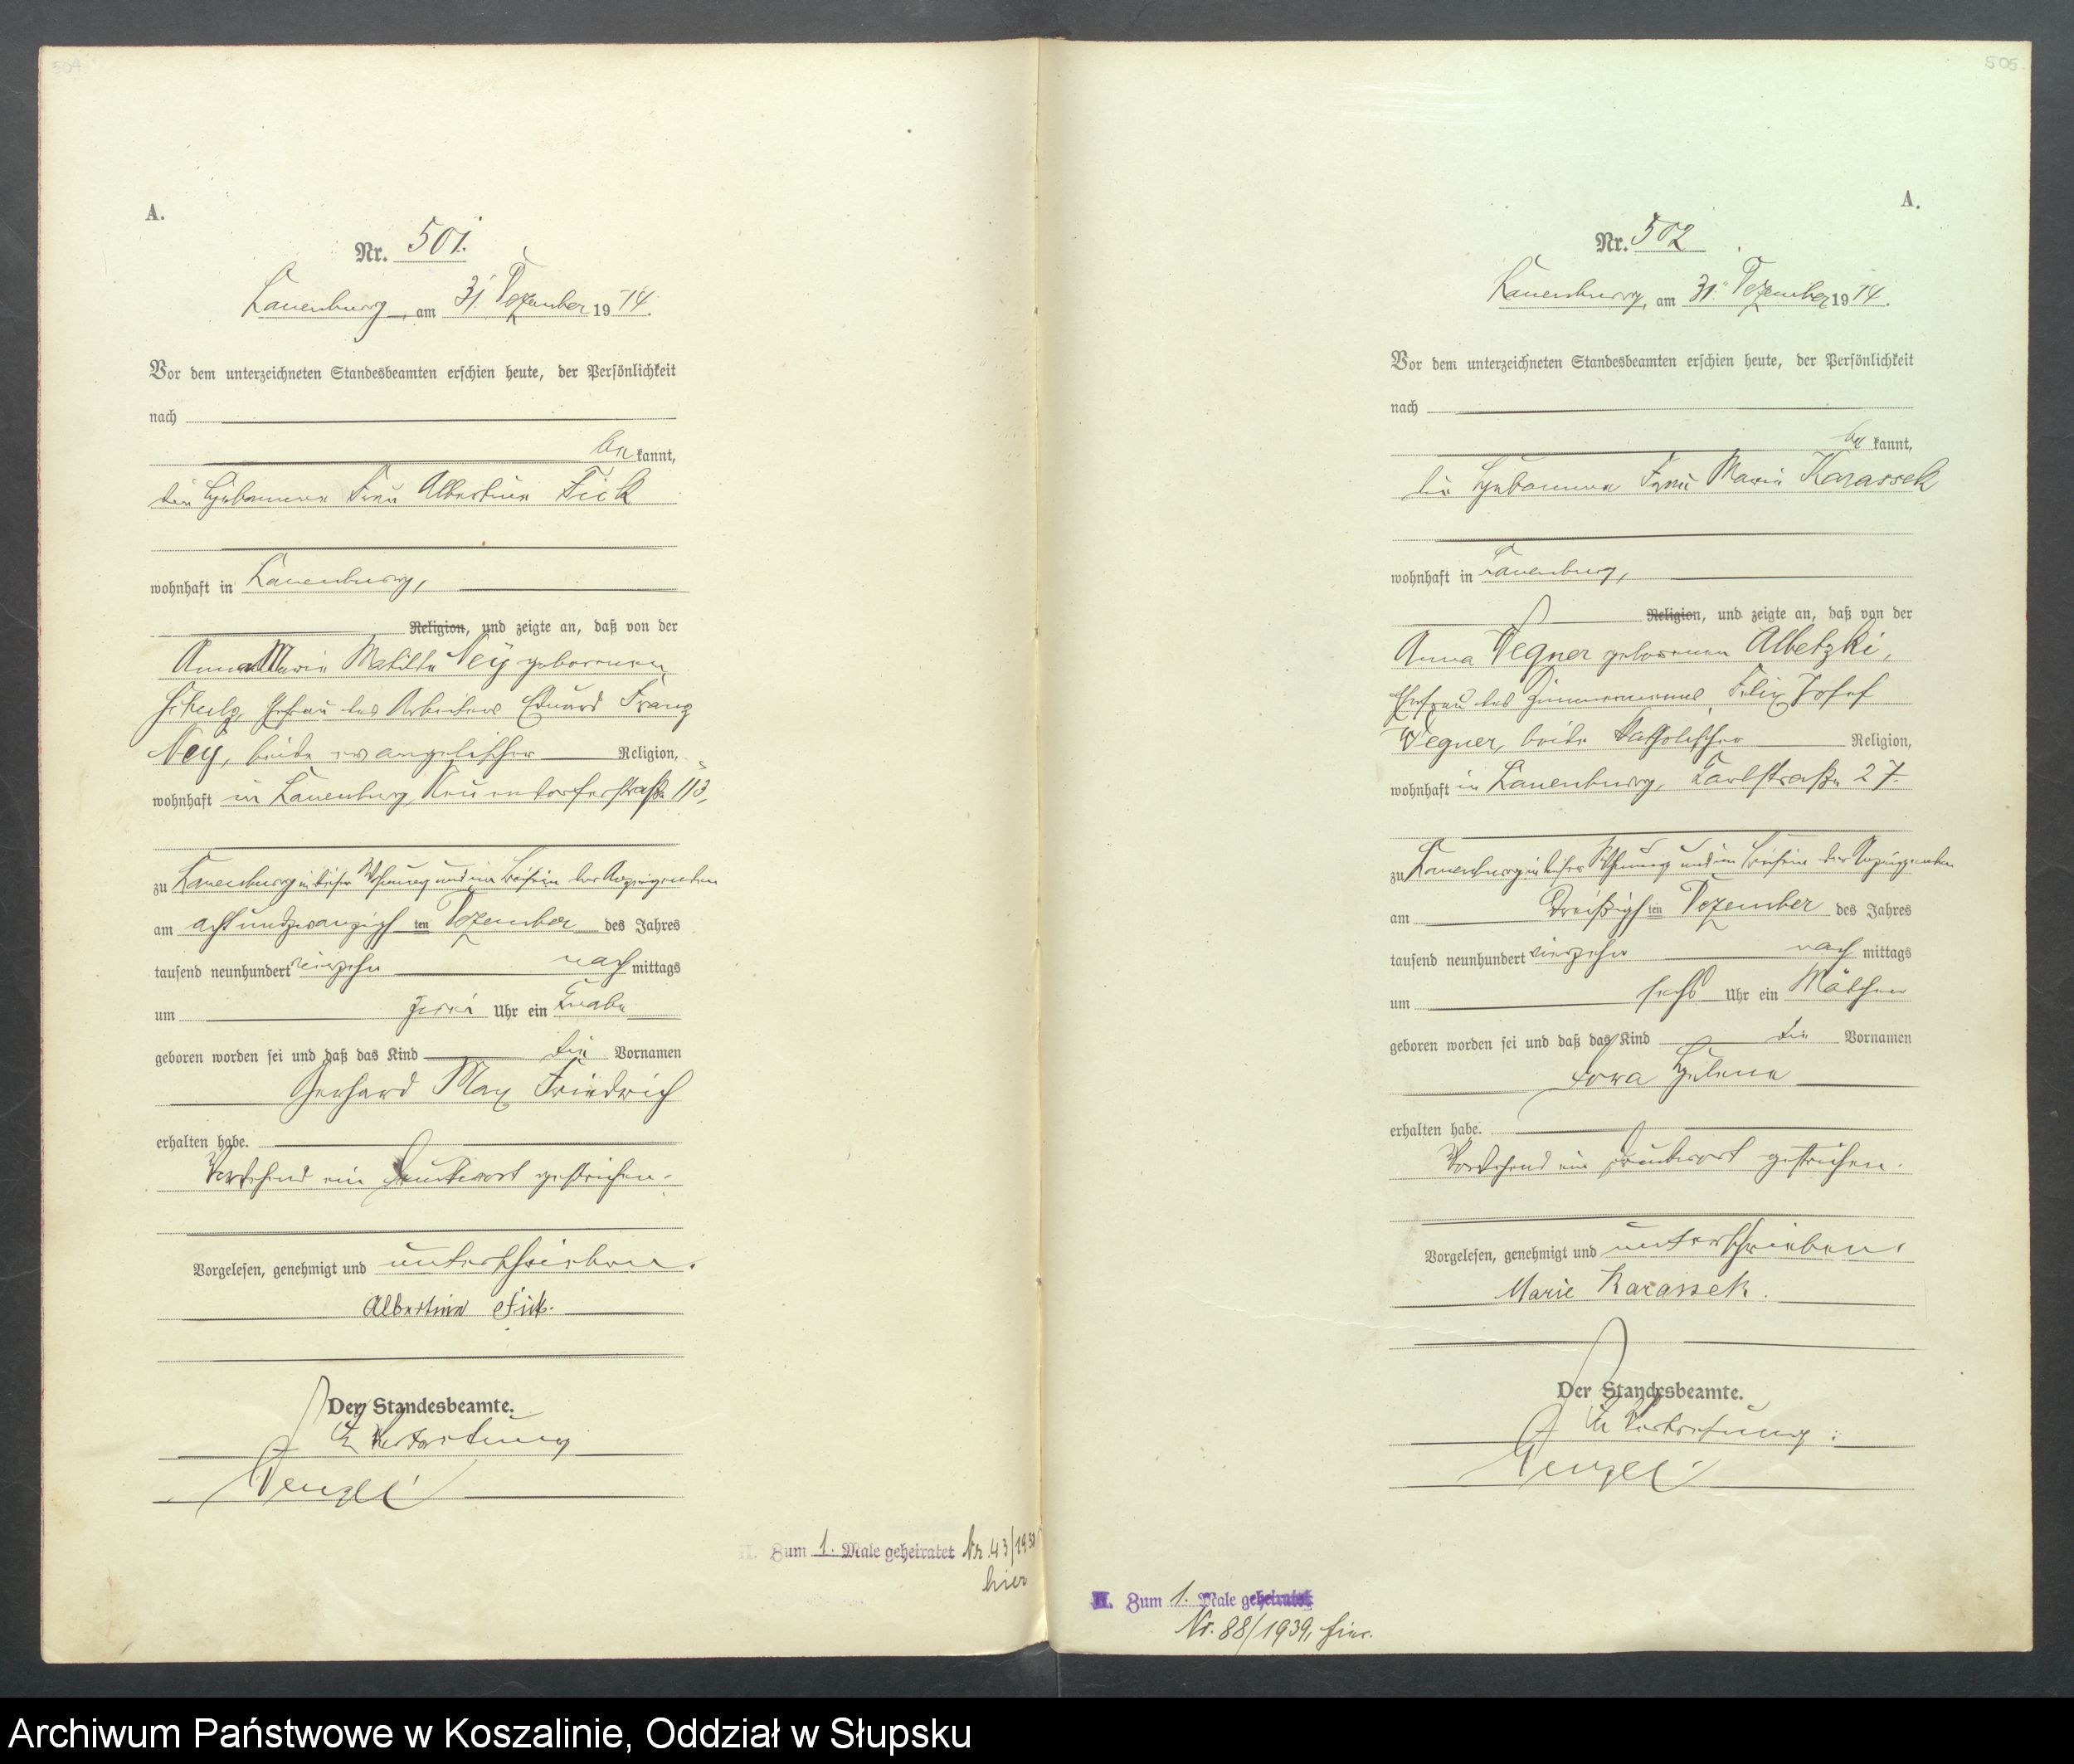 504
A.
Nr. 501.
Lauenburg, am 31. Dezember 1914.
Vor dem unterzeichneten Standesbeamten erschien heute, der Persönlichkeit
nach
be kannt,
die Hebamme Frau Albertine Fick
wohnhaft in Lauenburg,
Religion, und zeigte an, daß von der
Anna Marie Matilde Ney geborenen
Schulz, Ehefrau des Arbeiters Eduard Franz
Ney, beide evangelischer Religion,
wohnhaft in Lauenburg, Neuendorferstraße 113,
zu Lauenburg in dieser Wohnung und im Beisein der Anzeigenden
am achtundzwanzigsten Dezember des Jahres
tausend neunhundert vierzehn nach mittags
um zwei Uhr ein Knabe
geboren worden sei und daß das Kind die Vornamen
Gerhard Max Friedrich
erhalten habe.
Vorstehend ein Druckwort gestrichen.
Vorgelesen, genehmigt und unterschrieben.
Albertine Fick.
Der Standesbeamte.
In Vertretung
Wenzel
II. Zum 1. Male geheiratet Nr. 43/19
hier
505
A.
Nr. 502
Lauenburg, am 31. Dezember 1914.
Vor dem unterzeichneten Standesbeamten erschien heute, der Persönlichkeit
nach
be kannt,
die Hebamme Frau Marie Karassek
wohnhaft in Lauenburg,
Religion, und zeigte an, daß von der
Anna Wegner geborenen Albetzki,
Ehefrau des Zimmermanns Felix Josef
Wegner, beide katholischer Religion,
wohnhaft in Lauenburg, Karlstraße 27.
zu Lauenburg in dieser Wohnung und im Beisein der Anzeigenden
am dreißigsten Dezember des Jahres
tausend neunhundert vierzehn nach mittags
um sechs Uhr ein Mädchen
geboren worden sei und daß das Kind die Vornamen
Helene
erhalten habe.
Vorstehend ein Druckwort gestrichen.
Vorgelesen, genehmigt und unterschrieben.
Marie Karassek.
Der Standesbeamte.
In Vertretung:
Wenzel
II. Zum 1. Male geheiratet
Nr. 88/1939, hier.
Archiwum Państwowe w Koszalinie, Oddział w Słupsku